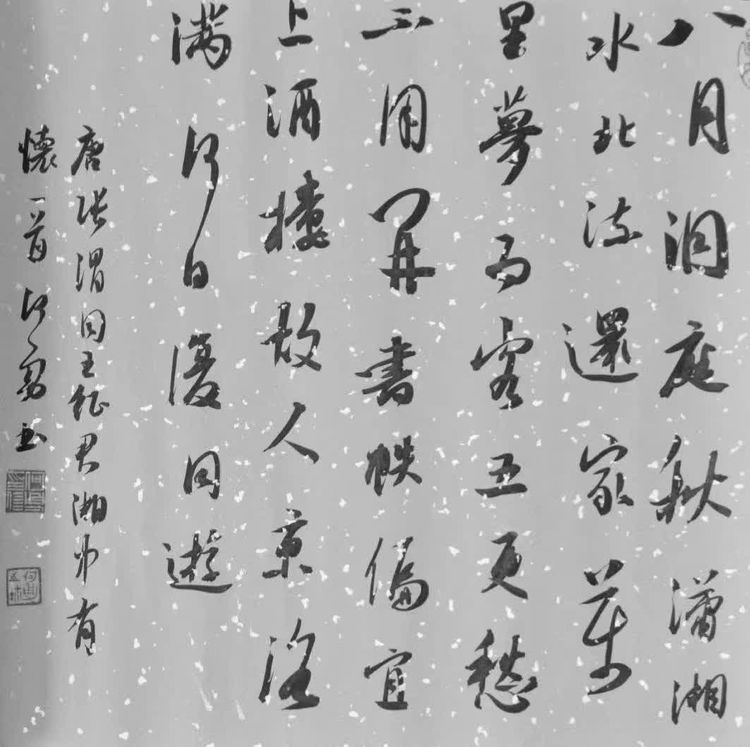 八月洞庭秋瀟湘
水北流還家萬
里夢為客五更愁
不用開書帙偏宜
上酒樓故人京洛
满何日復同遊
唐张渭同王征君湘中有
懷一首何勇书